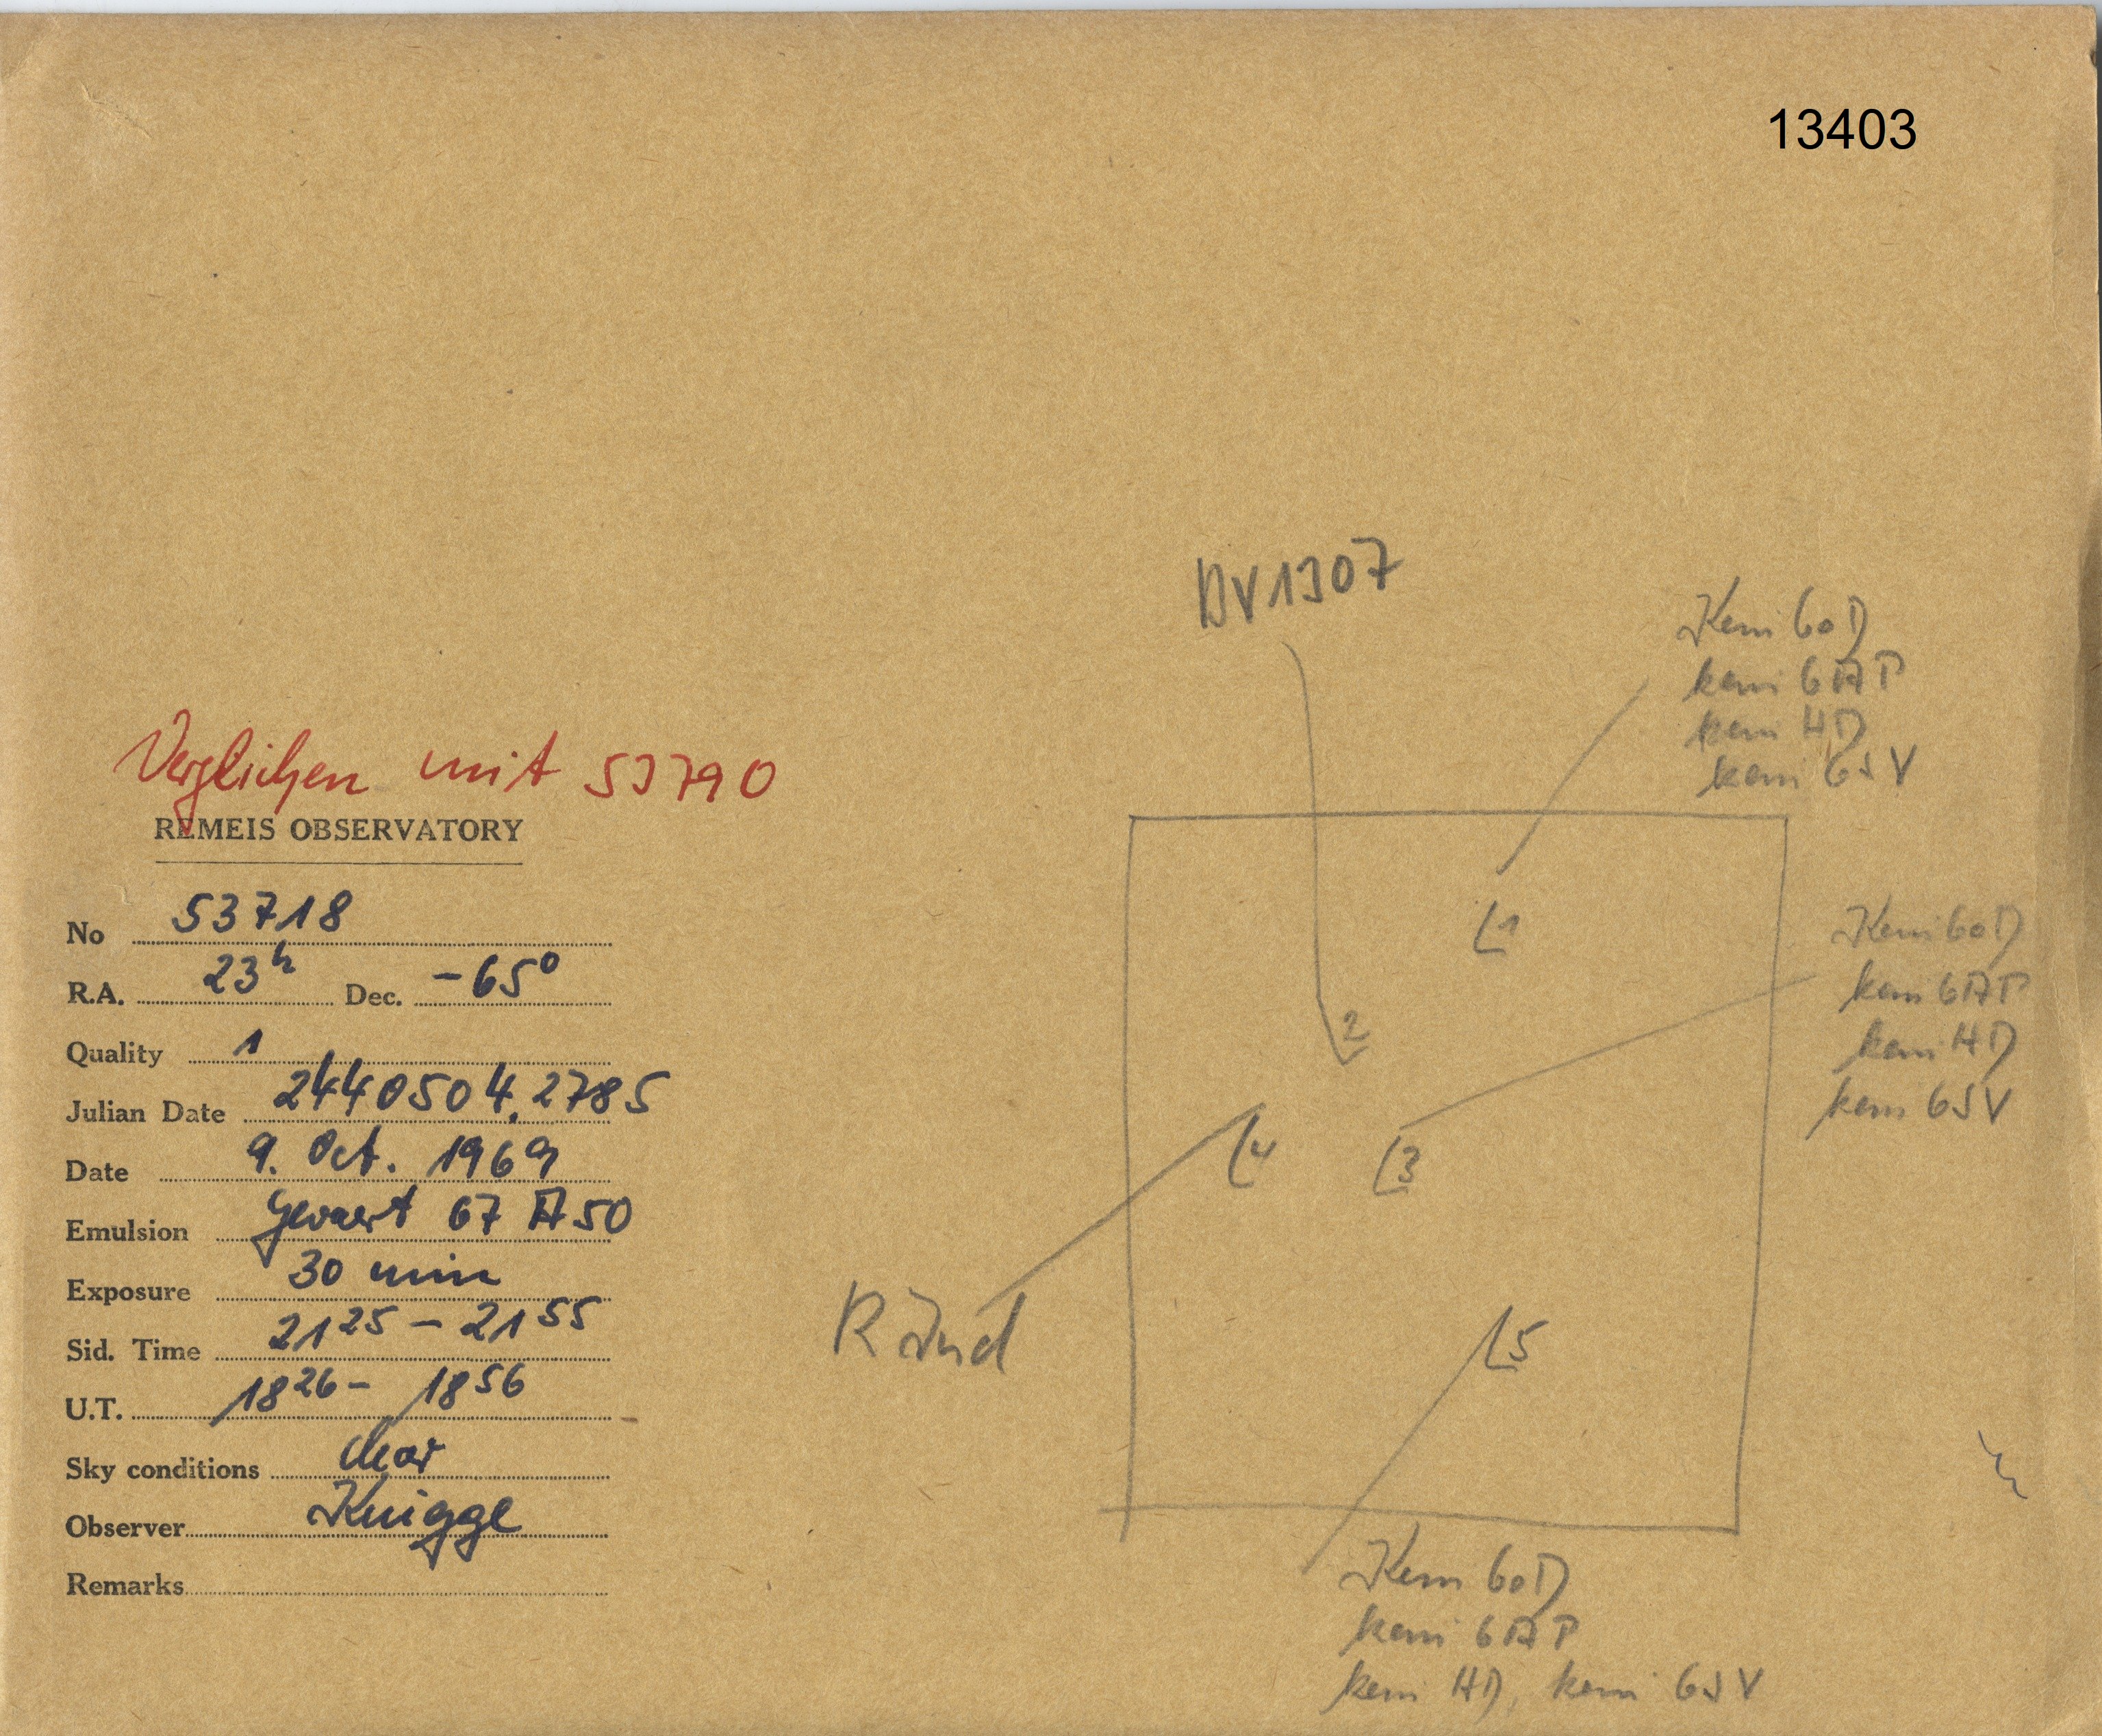 13403
BV1307
Kein GoD
kein GAP
kein HD
kein GSV
Verglichen mit 53790
REMEIS OBSERVATORY
No 53718
R.A. 23h Dec. -65°
Quality 1
Julian Date 2440504.2785
Date 9. Oct. 1969
Emulsion Gevaert 67 A50
Exposure 30 min
Sid. Time 21 25 - 21 55
U.T. 18 26 - 18 56
Sky conditions clear
Observer Knigge
Remarks
1
Kein GoD
kein GAP
kein HD
kein GSV
2
4
3
R Ind
5
Kein GoD
kein GAP
kein HD, kein GSV